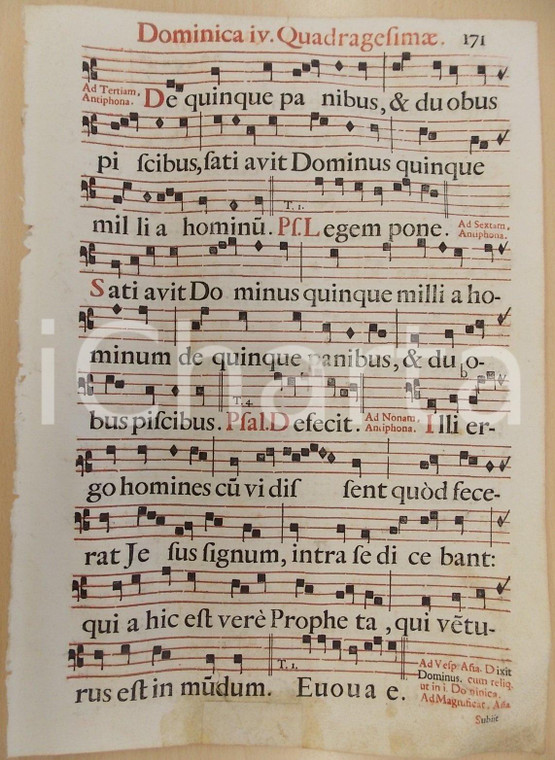 Dominica iv. Quadrageſimæ. 171
Ad Tertiam,
Antiphona.
De quinque pa nibus, & du obus
pi ſcibus, ſati avit Dominus quinque
T. 1.
mil li a hominū. Pſ. L egem pone. Ad Sextam,
Antiphona.
S ati avit Do minus quinque milli a ho-
minum de quinque panibus, & du o-
T. 4.
bus piſcibus. Pſal. D efecit. Ad Nonam,
Antiphona. I lli er-
go homines cū vi diſ ſent quòd fece-
rat Je ſus ſignum, intra ſe di ce bant:
qui a hic eſt verè Prophe ta , qui vētu-
T. 1.
rus eſt in mūdum. Euoua e.
Ad Veſp. Aña. Dixit
Dominus, cum reliq.
ut in 1. Dominica.
Ad Magnificat, Aña
Subiit
iCharta